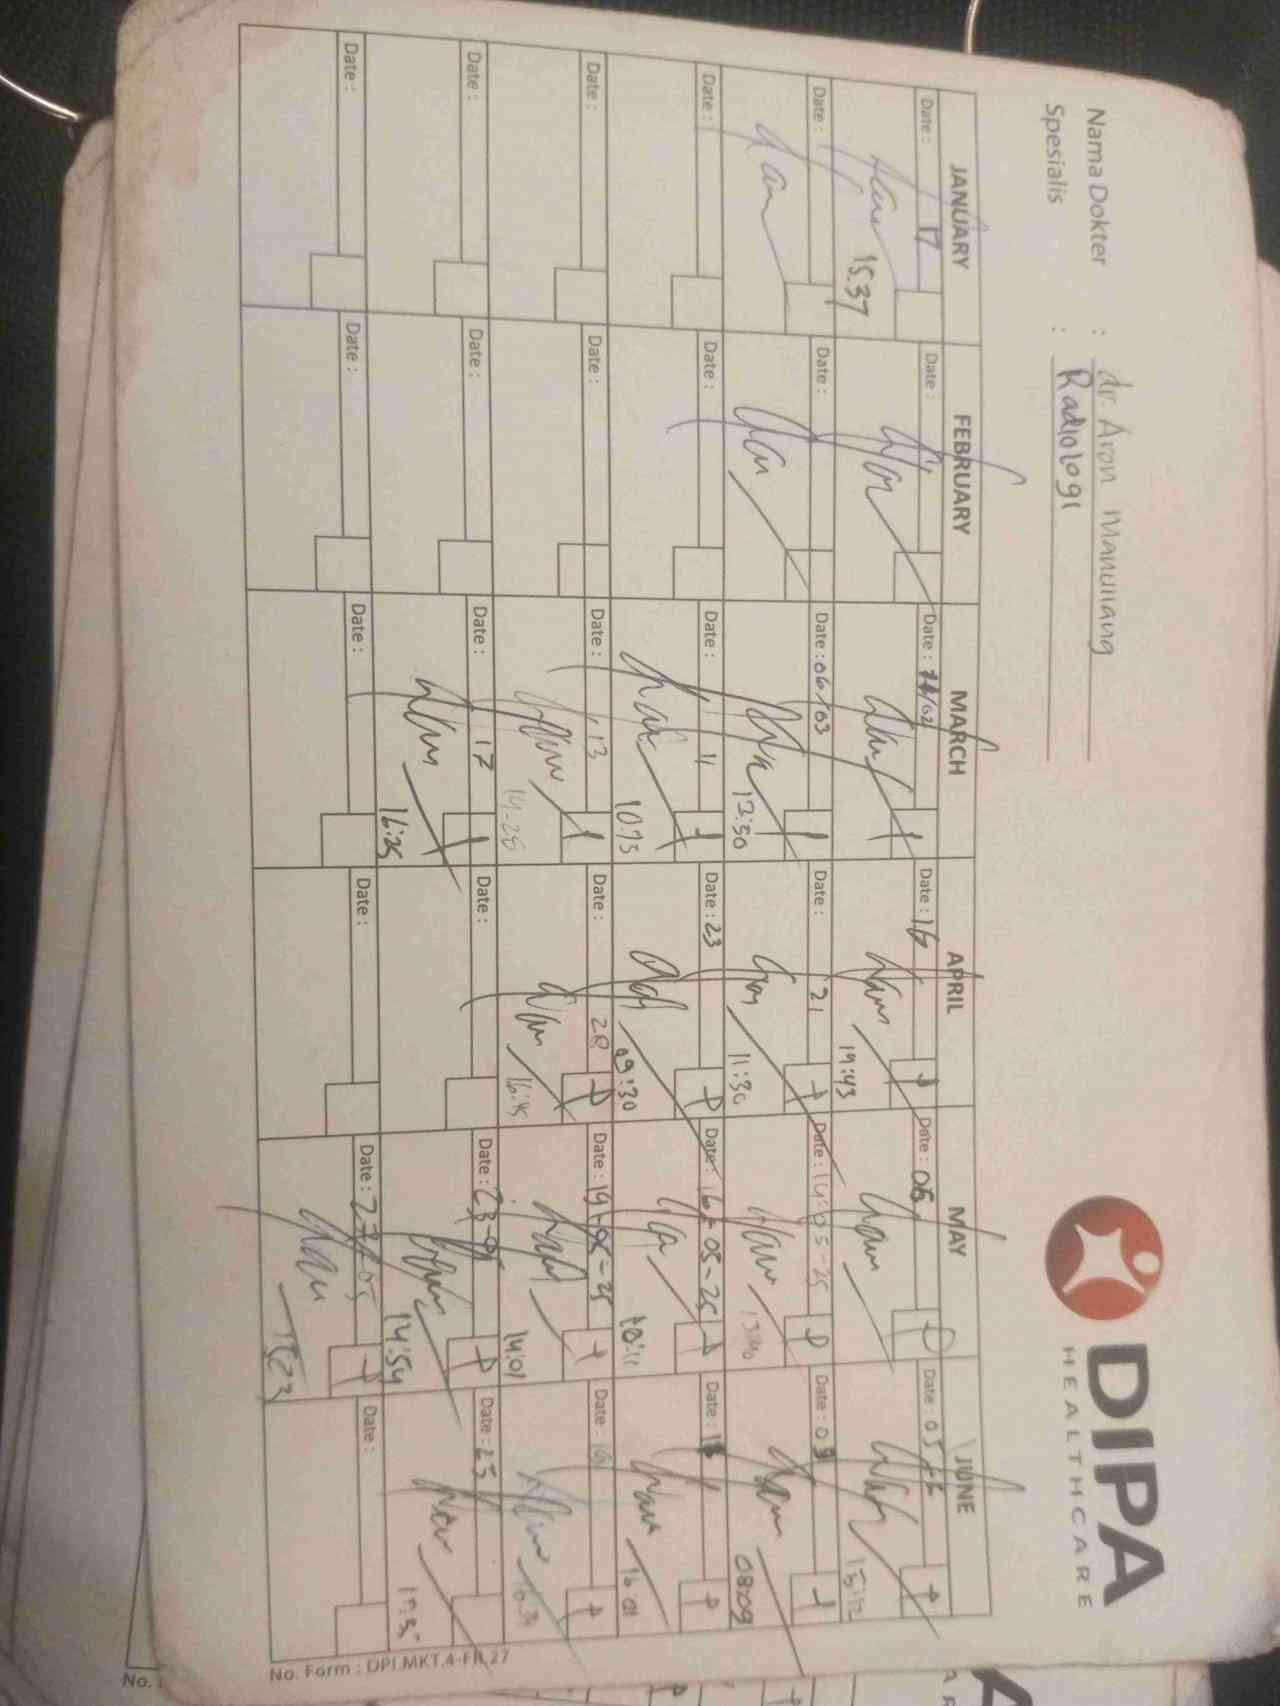 DIPA
HEALTHCARE
Nama Dokter : dr. Aron Manullang
Spesialis : Radiologi
JANUARY FEBRUARY MARCH APRIL MAY JUNE
Date : 17 Date : Date : /02 Date : 16 Date : 06 Date : 05
15.37 19:43 15:12
Date : Date : Date : 06/03 Date : 21 Date : 14-05-25 Date : 09
13:50 11:30 13:40 08:09
Date : Date : Date : 11 Date : 23 Date : 16-05-25 Date :
10.15 09:30 10:11 16.01
Date : Date : Date : 13 Date : 28 Date : 19-05-25 Date :
14-28 16:45 14:01 16-31
Date : Date : Date : 17 Date : Date : 23-05 Date : 25
16:25 14:54
Date : Date : Date : Date : Date : 27-05 Date :
No. Form : DPI.MKT.4-FR.27
No.